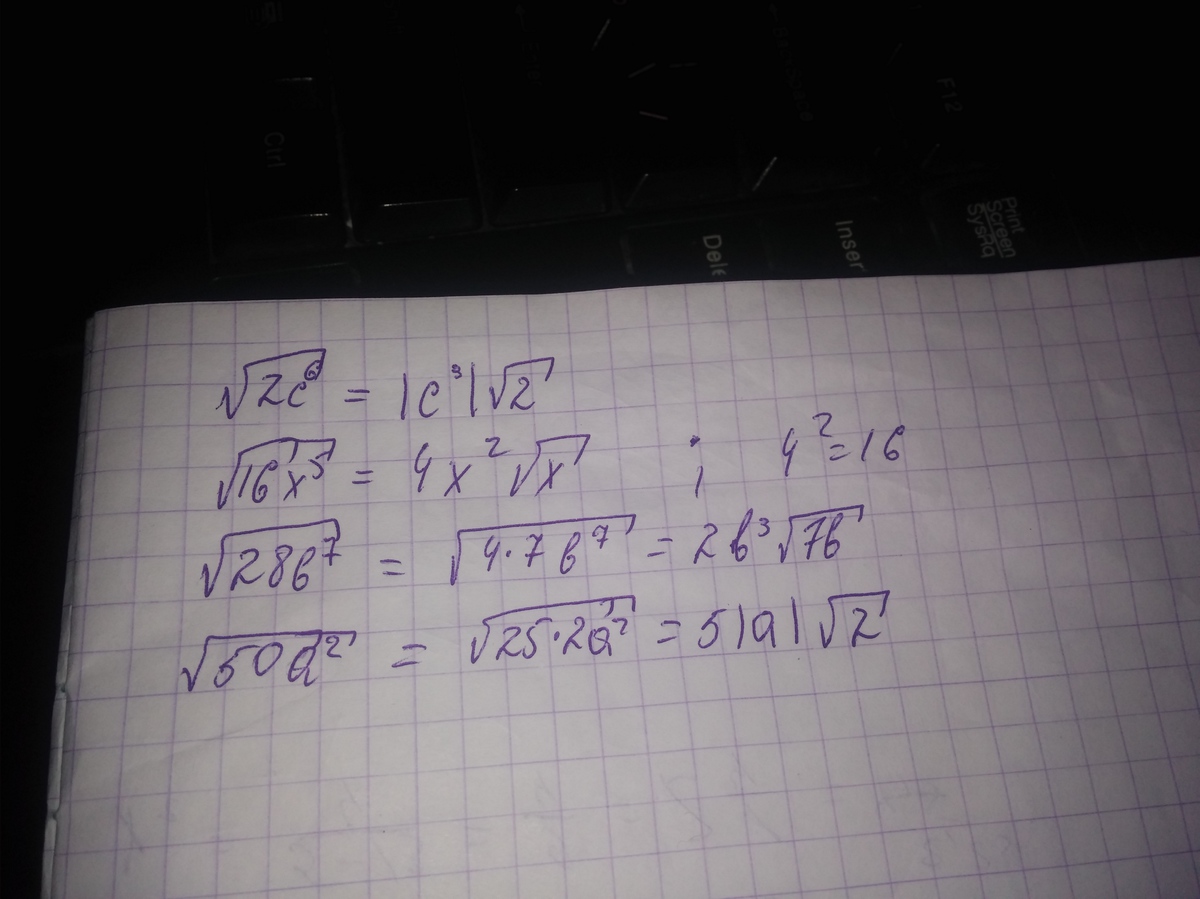 F12
Ctrl
Print Screen SysRq
Inser
Dele
√2c⁶ = |c³|√2
√16x⁵ = 4x²√x ; 4² = 16
√28b⁷ = √4·7b⁷ = 2b³√7b
√50a² = √25·2a² = 5|a|√2